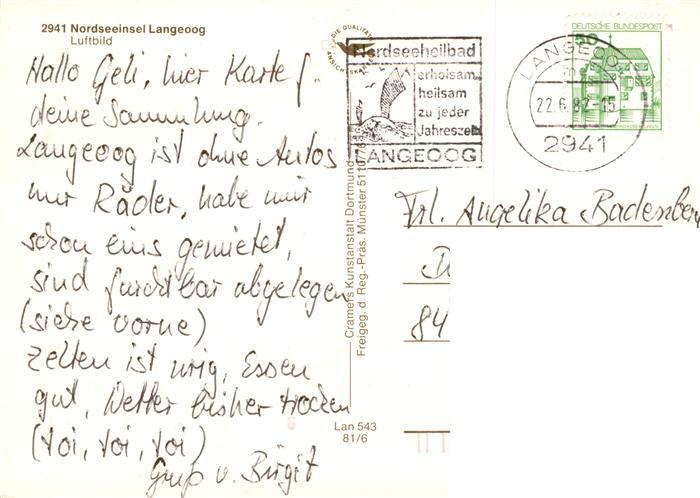 2941 Nordseeinsel Langeoog
Luftbild
Hallo Geli, hier Karte f.
deine Sammlung.
Langeoog ist ohne Autos
nur Räder, habe mir
schon eins gemietet,
sind furchtbar abgelegen
(siehe vorne)
Zelten ist urig, Essen
gut, Wetter bisher trocken
(toi, toi, toi)
Gruß v. Birgit
DIE QUALITÄTS
ANSICHTSKARTE
Cramers Kunstanstalt Dortmund
Freigeg. d. Reg.-Präs. Münster 5110
Lan 543
81/6
Nordseeheilbad
erholsam
heilsam
zu jeder
Jahreszeit
LANGEOOG
LANGEOOG
22.6.82-15
2941
DEUTSCHE BUNDESPOST
50
Frl. Angelika Badenberg
84